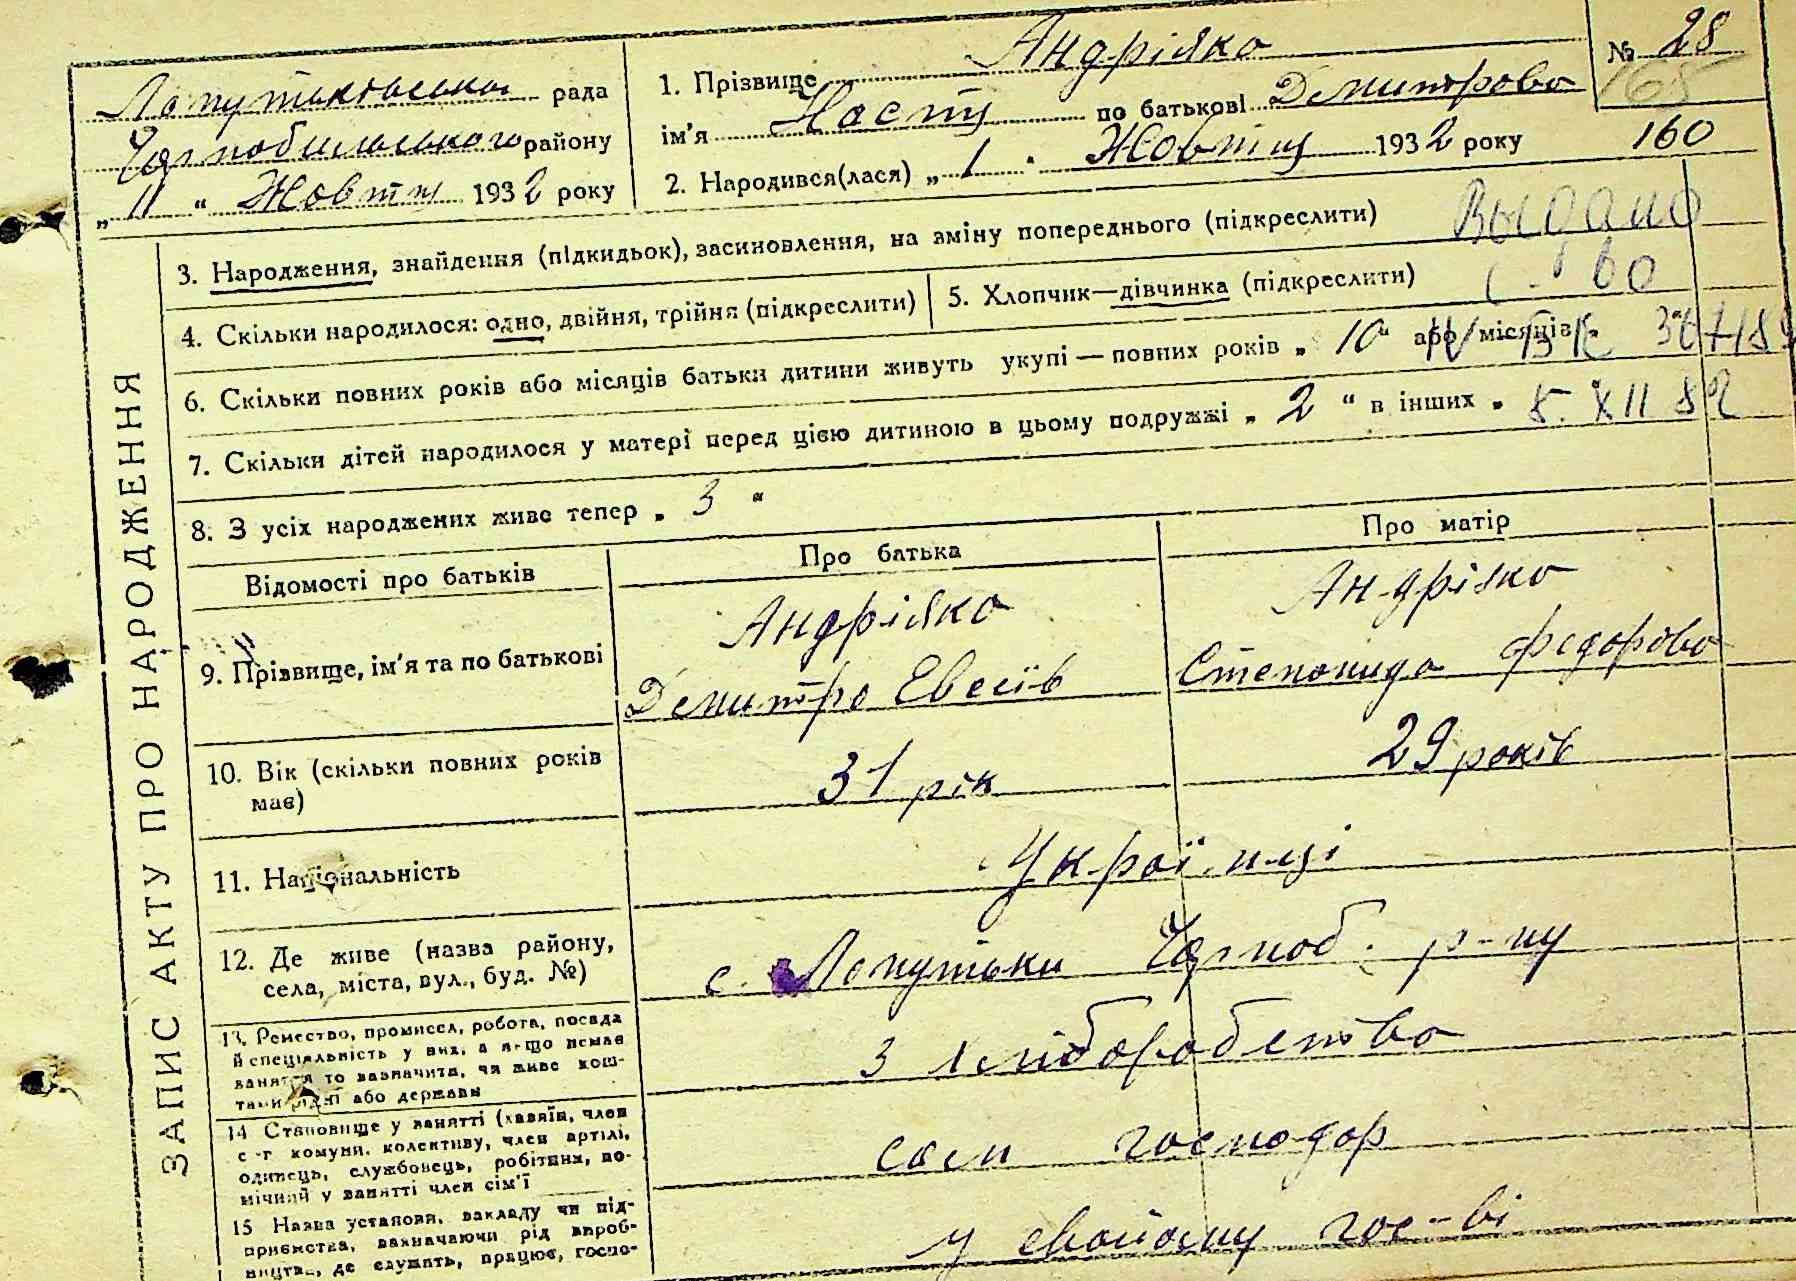 ЗАПИС АКТУ ПРО НАРОДЖЕННЯ
Лопутьківська рада
Чорнобильського району
„ 11 “ Жовтня 1932 року
1. Прізвище Андріяко
ім'я Настя по батькові Демитрова
2. Народився(лася) „ 1 “ Жовтня 1932 року
№ 28
165
160
3. Народження, знайдення (підкидьок), засиновлення, на зміну попереднього (підкреслити)
Выдано
4. Скільки народилося: одно, двійня, трійня (підкреслити)
5. Хлопчик—дівчинка (підкреслити)
6. Скільки повних років або місяців батьки дитини живуть укупі — повних років „ 10 “ або місяців „
7. Скільки дітей народилося у матері перед цією дитиною в цьому подружжі „ 2 “ в інших „
8. XII 82
8. З усіх народжених живе тепер „ 3 “
Відомості про батьків
Про батька
Про матір
9. Прізвище, ім'я та по батькові
Андріяко
Демитро Евсіїв
Андріяко
Степонида Федорова
10. Вік (скільки повних років має)
31 рік
29 років
11. Національність
Україн​ці
12. Де живе (назва району,
села, міста, вул., буд. №)
с. Лопутьки Чорноб. р-ну
13. Ремество, промисел, робота, посада
й спеціяльність у них, а якщо немає
заняття то зазначити, чи живе кош-
тами рідні або держави
З хліборобства
14 Становище у занятті (хазяїн, член
с-г комуни, колективу, член артілі,
одинець, службовець, робітник, по-
мічний у занятті член сім'ї
сам господар
15 Назва установи, закладу чи під-
приємства, зазначаючи рід вироб-
ництва, де служить, працює, госпо-
У своїому гос-ві